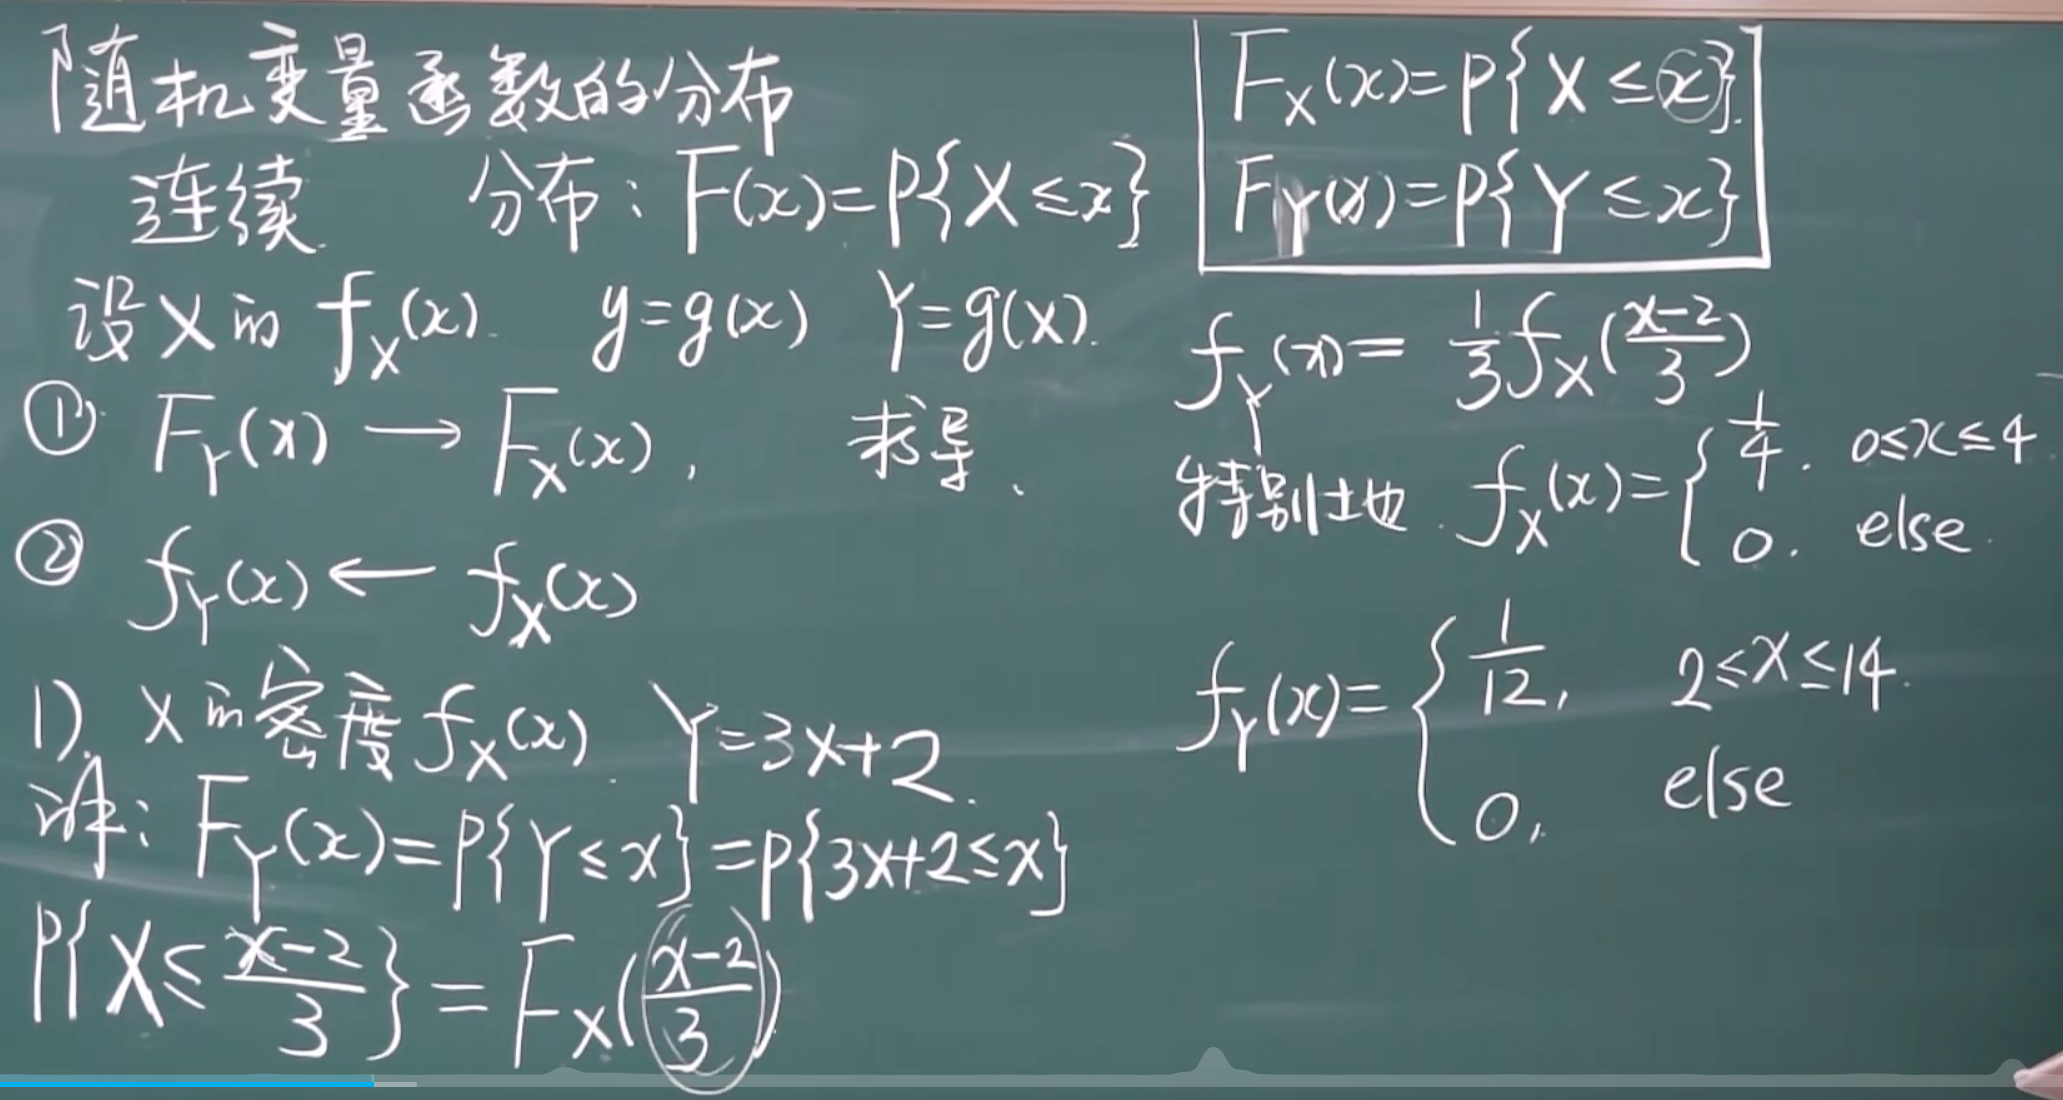 随机变量函数的分布
连续 分布: F(x)=P{X≤x}
设X的 f_X(x). y=g(x) Y=g(X).
① F_Y(x) → F_X(x), 求导、
② f_Y(x) ← f_X(x)
1). X的密度 f_X(x). Y=3X+2.
解: F_Y(x)=P{Y≤x}=P{3X+2≤x}
P{X≤(x-2)/3}=F_X((x-2)/3)
F_X(x)=P{X≤x}.
F_Y(x)=P{Y≤x}
f_Y(x)= 1/3 f_X((x-2)/3)
特别地. f_X(x)={ 1/4. 0≤x≤4.
0. else.
f_Y(x)={ 1/12, 2≤x≤14.
0, else